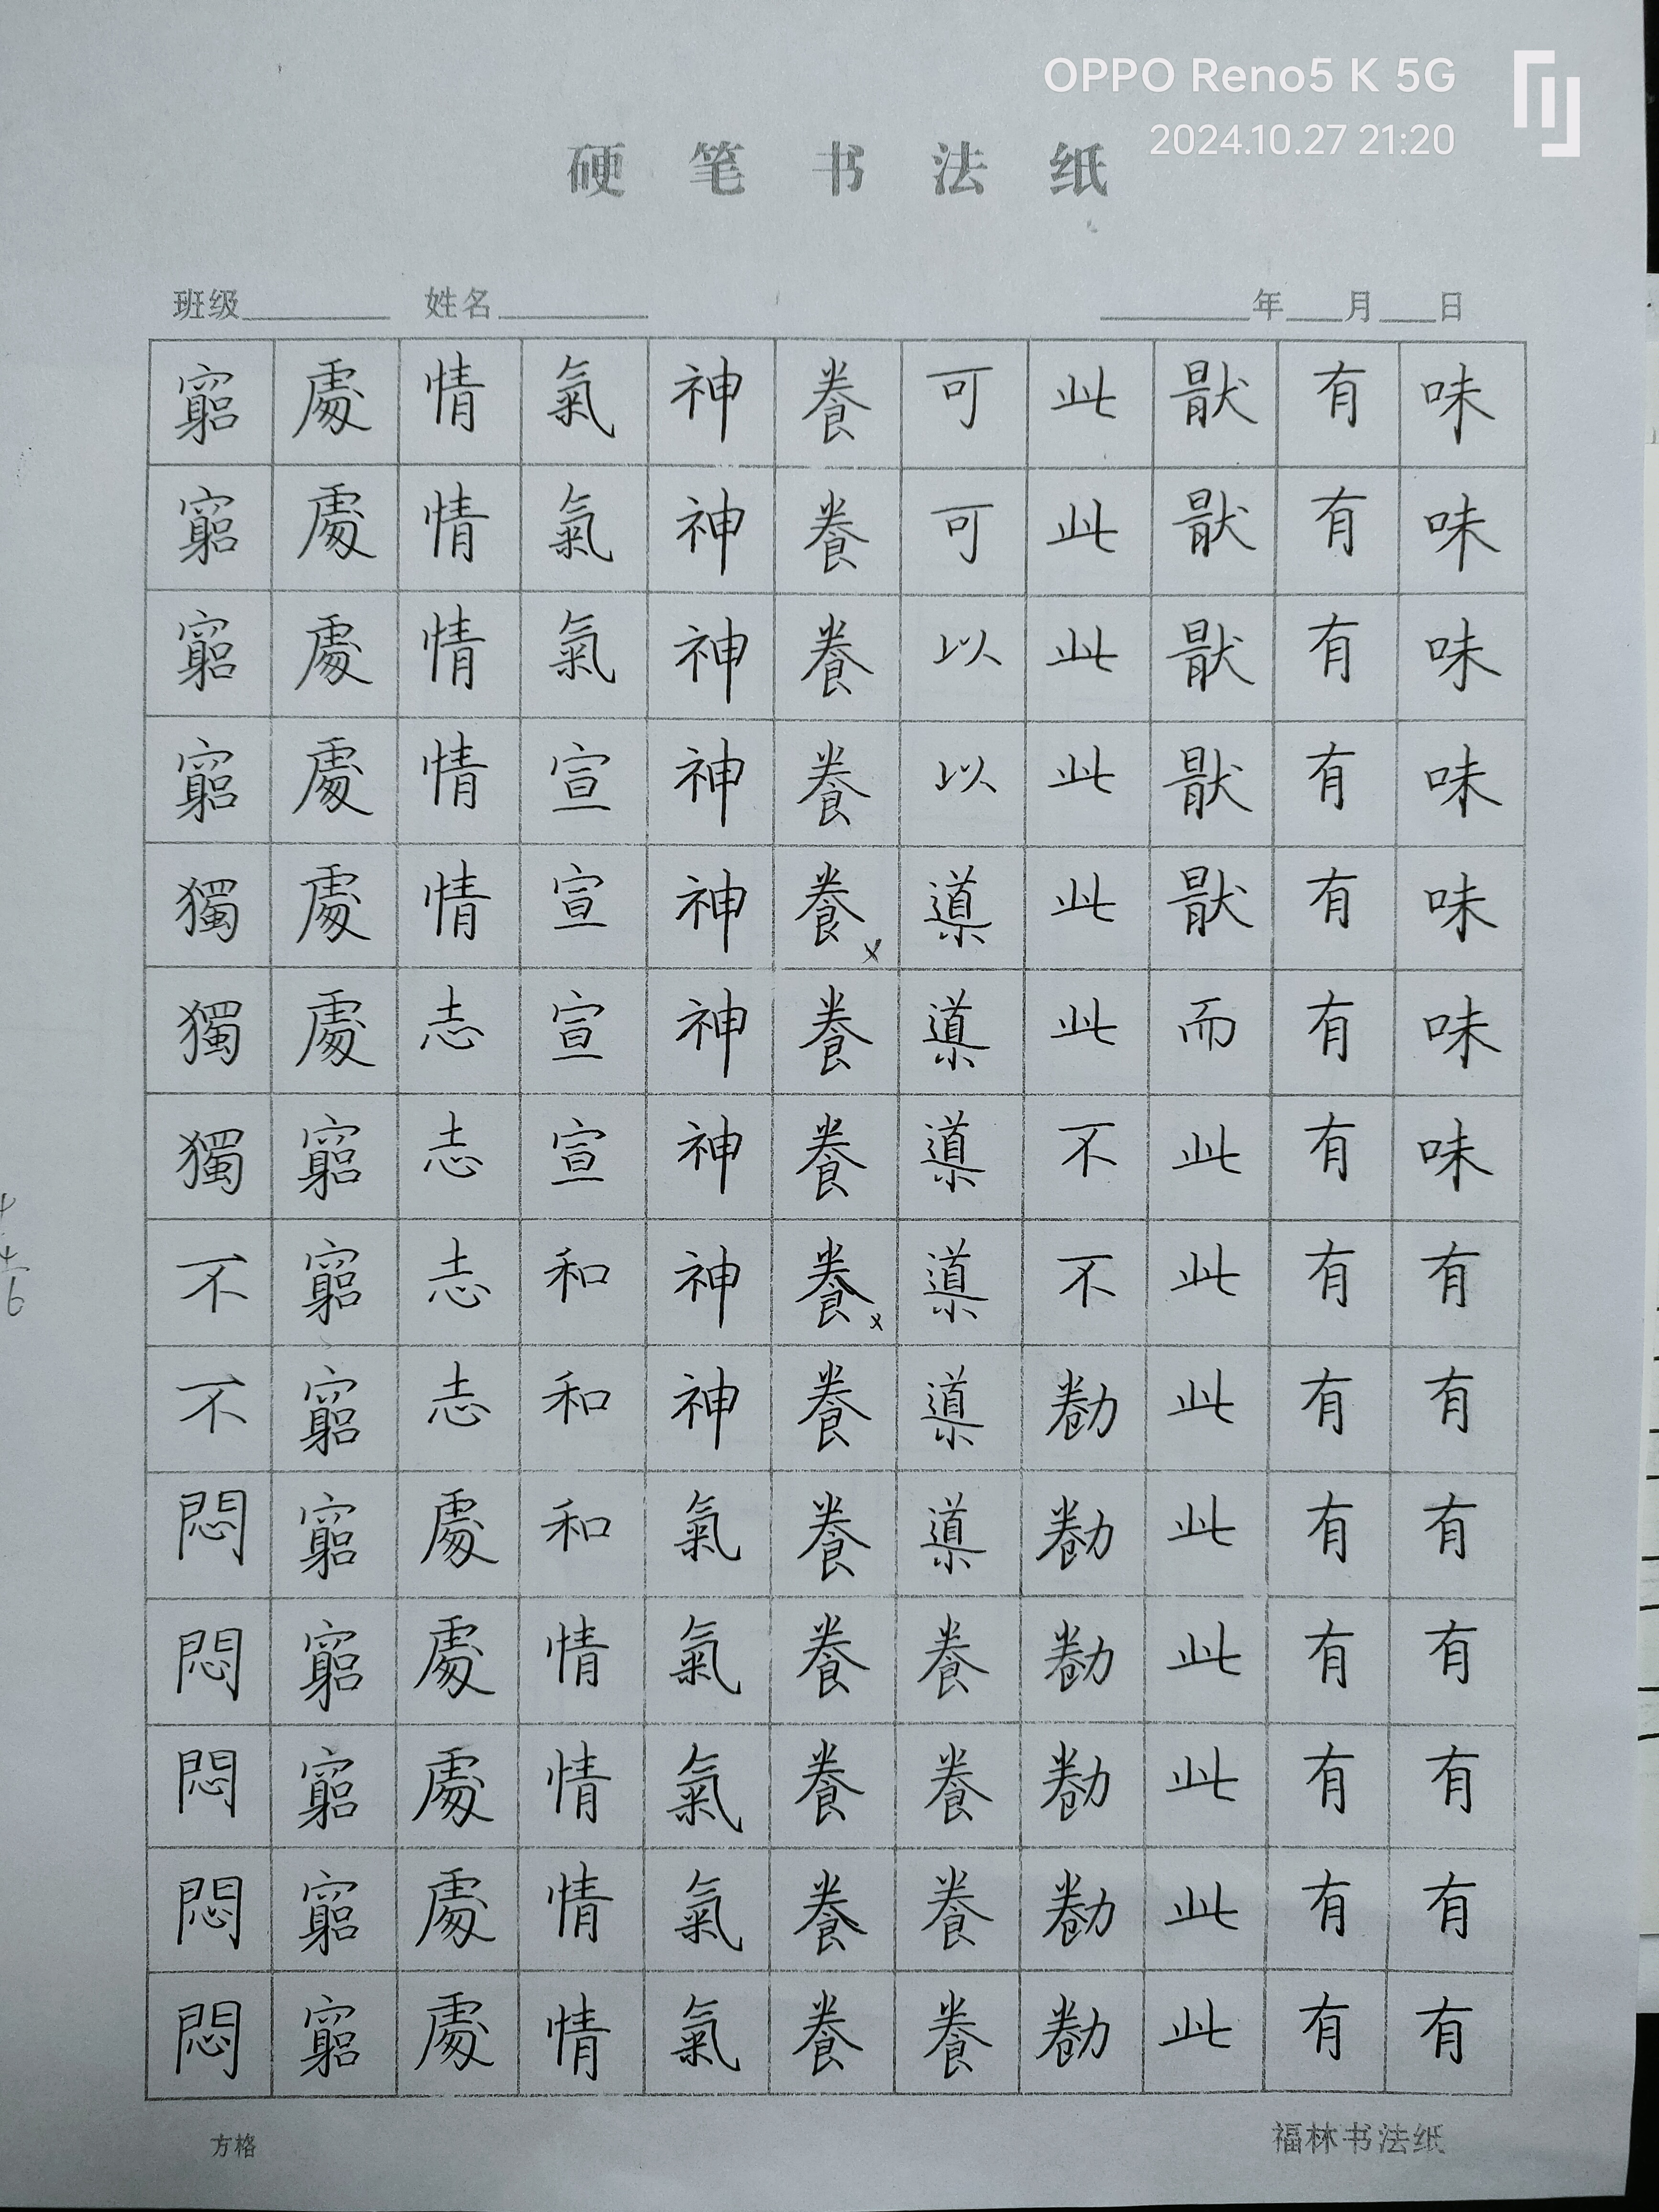 OPPO Reno5 K 5G
2024.10.27 21:20
硬笔书法纸
班级 姓名 年 月 日
味味味味味味味有有有有有有有
有有有有有有有有有有有有有有
猒猒猒猒猒而此此此此此此此此
此此此此此此不不勌勌勌勌勌勌
可可以以導導導導導導養養養養
養養養養養養養養養養養養養養
神神神神神神神神神氣氣氣氣氣
氣氣氣宣宣宣宣和和和情情情情
情情情情情志志志志處處處處處
處處處處處處窮窮窮窮窮窮窮窮
窮窮窮窮獨獨獨不不悶悶悶悶悶
方格
福林书法纸